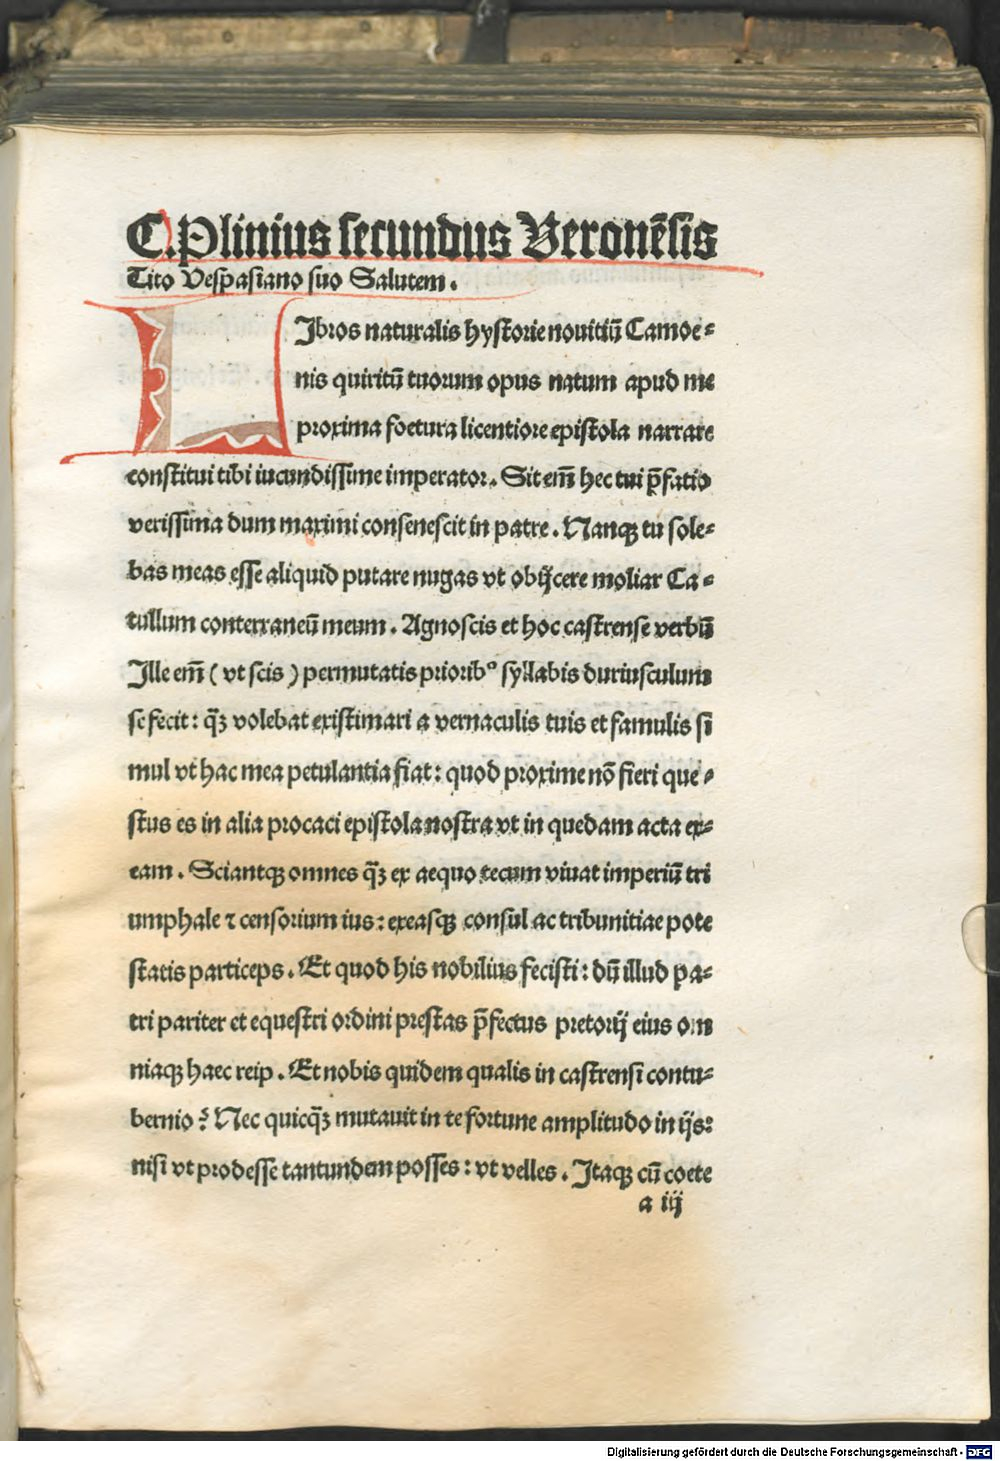 C. Plinius secundus Veronēsis
Tito Vespasiano suo Salutem.
LJbros naturalis hystorie novitiū Camoe-
nis quiritū tuorum opus natum apud me
proxima foetura licentiore epistola narrare
constitui tibi iucundissime imperator. Sit em̄ hec tui p̄fatio
verissima dum maximi consenescit in patre. Nanqꝫ tu sole-
bas meas esse aliquid putare nugas vt obijcere moliar Ca-
tullum conterraneū meum. Agnoscis et hoc castrense verbū
Jlle em̄ (vt scis) permutatis priorib⁹ syllabis duriusculum
se fecit: q̄ꝫ volebat existimari a vernaculis tuis et famulis si
mul vt hac mea petulantia fiat: quod proxime nō fieri que-
stus es in alia procaci epistola nostra vt in quedam acta ex-
eam. Sciantqꝫ omnes q̄ꝫ ex aequo tecum vivat imperiū tri
umphale ⁊ censorium ius: exeasqꝫ consul ac tribunitiae pote
statis particeps. Et quod his nobilius fecisti: dū illud pa-
tri pariter et equestri ordini prestas p̄fectus pretorij eius om
niaqꝫ haec reip. Et nobis quidem qualis in castrensi contu-
bernio? Nec quicq̄ꝫ mutauit in te fortune amplitudo in ijs:
nisi vt prodesse tantundem posses: vt velles. Jtaqꝫ cū coete
a iij
Digitalisierung gefördert durch die Deutsche Forschungsgemeinschaft - DFG